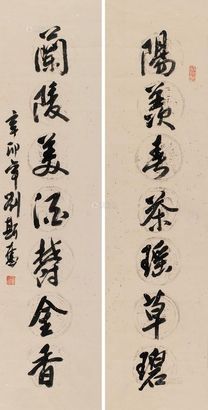 陽羨春茶瑤草碧
蘭陵美酒鬱金香
辛卯年劉斯奮